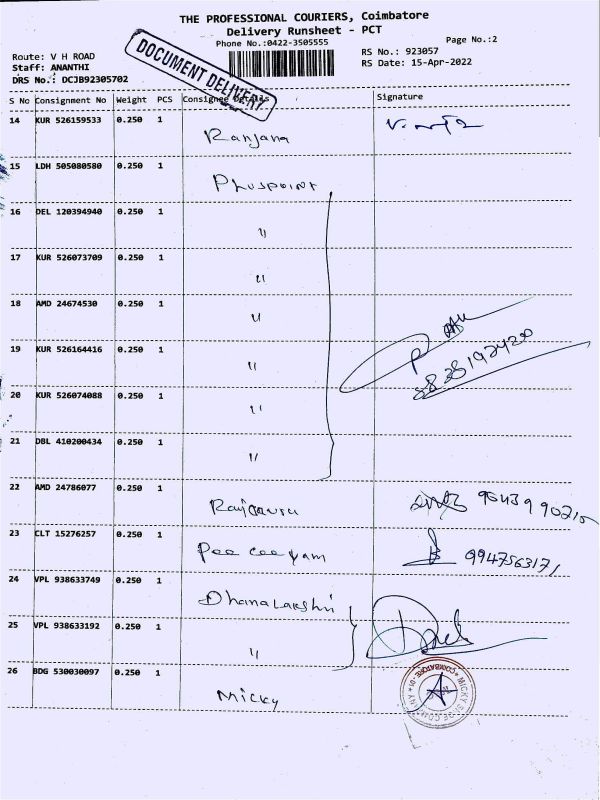 THE PROFESSIONAL COURIERS, Coimbatore
Delivery Runsheet - PCT
Phone No.:0422-3505555
Page No.:2
Route: V H ROAD
Staff: ANANTHI
DRS No.: DCJB92305702
RS No.: 923057
RS Date: 15-Apr-2022
DOCUMENT DELIVERY
S No Consignment No Weight PCS Consignee Details Signature
14 KUR 526159533 0.250 1
Ranjana
15 LDH 505080580 0.250 1
Pluspoint
16 DEL 120394940 0.250 1
"
17 KUR 526073709 0.250 1
"
18 AMD 24674530 0.250 1
"
19 KUR 526164416 0.250 1
"
20 KUR 526074088 0.250 1
"
21 DBL 410200434 0.250 1
"
22 AMD 24786077 0.250 1
23 CLT 15276257 0.250 1
Pee Cee yam 9947563171
24 VPL 938633749 0.250 1
Dhanalakshmi
25 VPL 938633192 0.250 1
"
26 BDG 530030097 0.250 1
Micky